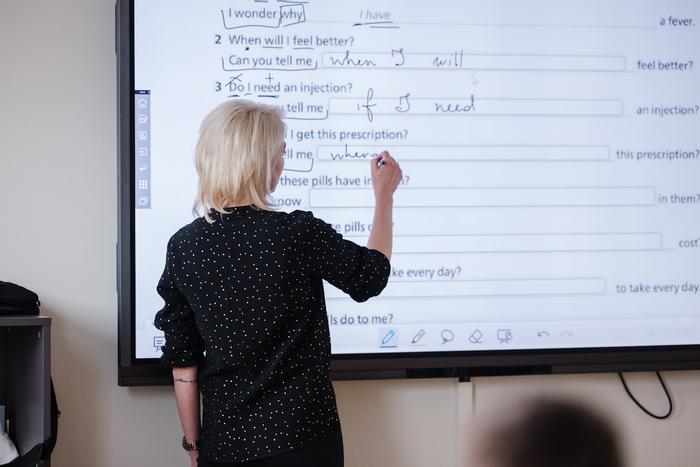 I wonder why I have a fever.
2 When will I feel better?
Can you tell me when I will feel better?
3 Do I need an injection?
tell me if I need an injection?
I get this prescription?
me where this prescription?
these pills have in
in them?
pills
cost
every day?
to take every day
do to me?